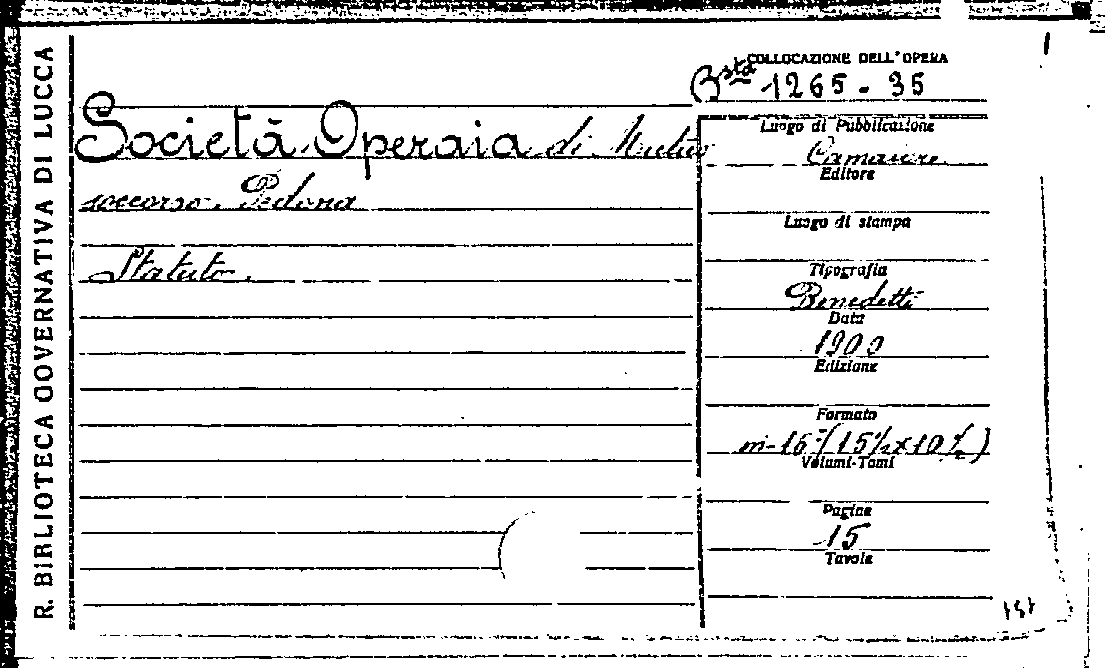 R. BIBLIOTECA GOVERNATIVA DI LUCCA
COLLOCAZIONE DELL'OPERA
Bsta 1265 - 35
Società Operaia di Mutuo
soccorso. Pedona
Statuto.
Luogo di Pubblicazione
Camaiore
Editore
Luogo di stampa
Tipografia
Benedetti
Data
1900
Edizione
Formato
in-16º (15½ x 10½)
Volumi-Tomi
Pagine
15
Tavole